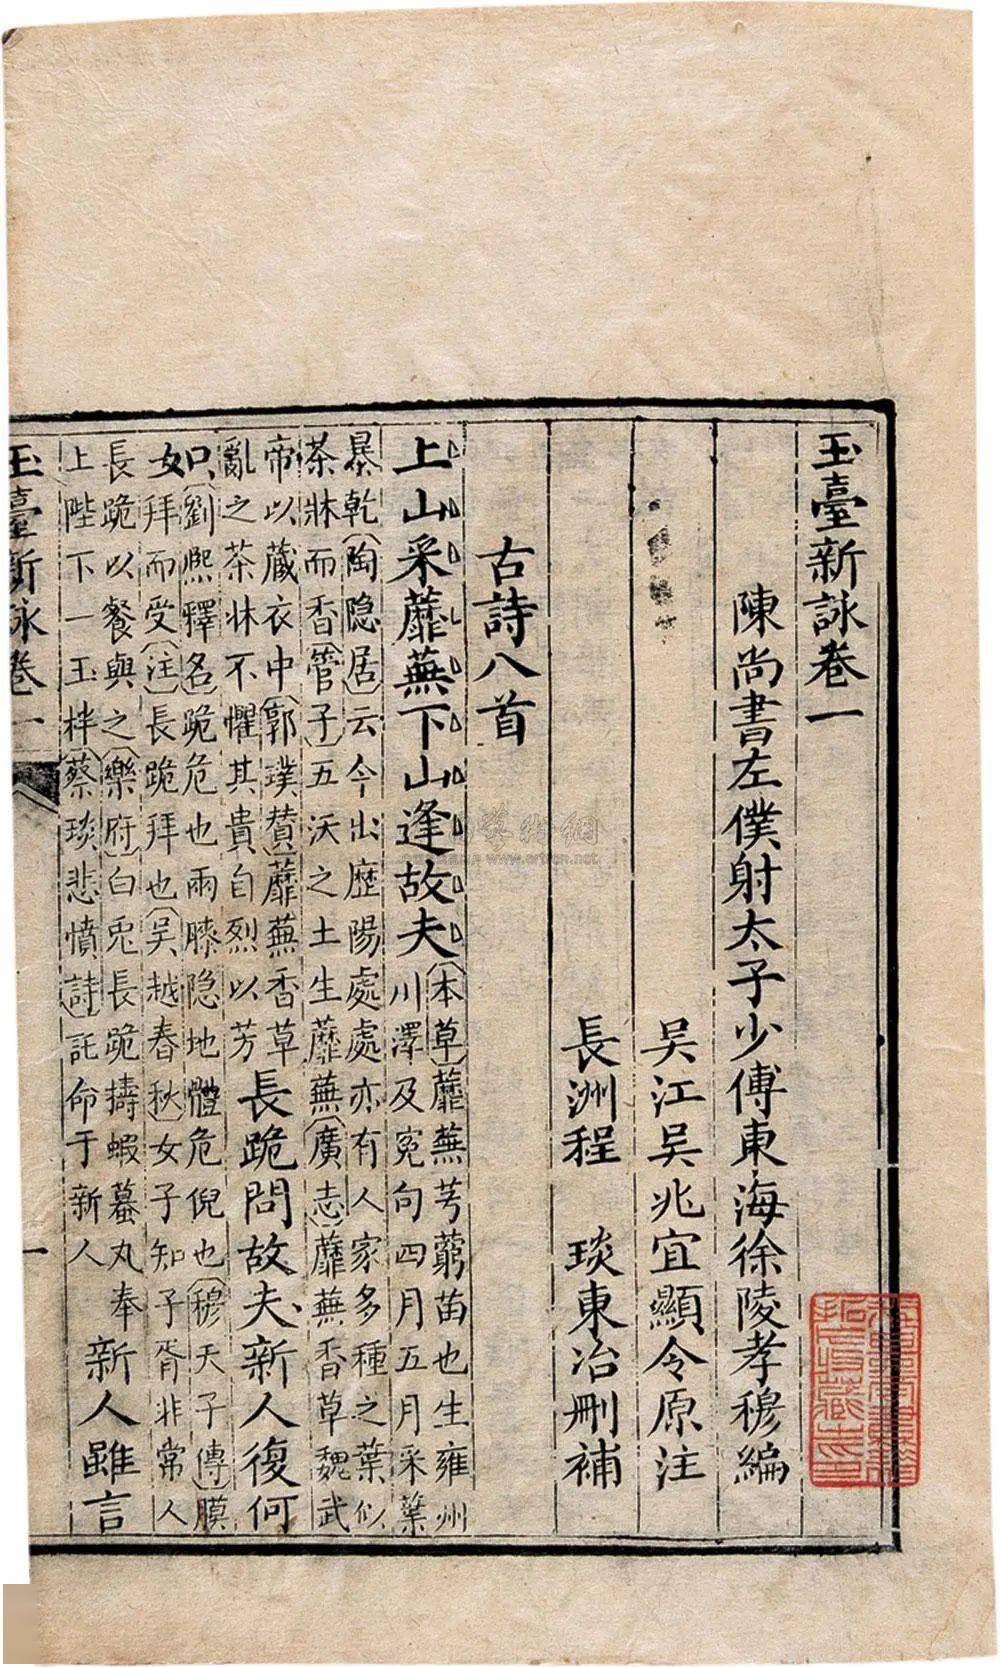 玉臺新詠卷一
陳尚書左僕射太子少傅東海徐陵孝穆編
吳江吳兆宜顯令原注
長洲程　琰東冶刪補
古詩八首
上山采蘼蕪下山逢故夫
〔本草〕蘼蕪芎藭苗也生雍州
川澤及冤句四月五月采葉
暴乾〔陶隐居〕云今出歷陽處處亦有人家多種之葉似
荼牀而香〔管子〕五沃之土生蘼蕪〔廣志〕蘼蕪香草魏武
帝以藏衣中〔郭璞贊〕蘼蕪香草
亂之荼牀不懼其貴自烈以芳
長跪問故夫新人復何
如
〔劉熙釋名〕跪危也兩膝隐地體危倪也〔穆天子傳〕膜
拜而受〔注〕長跪拜也〔吳越春秋〕女子知子胥非常人
長跪以餐與之〔樂府〕白兔長跪擣蝦蟇丸奉
上陛下一玉柈〔蔡琰悲憤詩〕託命于新人
新人雖言
玉臺新詠卷一
一